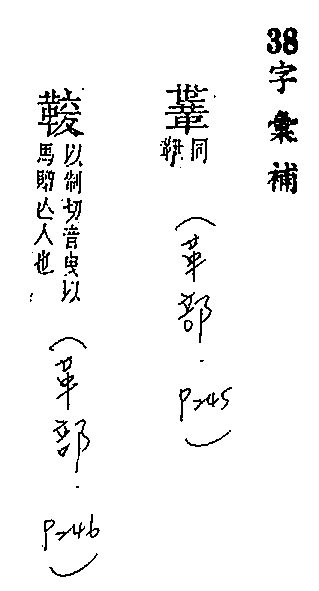 38字彙補
同
（革部．P245）
以制切音曳以
馬贈亾人也
（革部．P246）